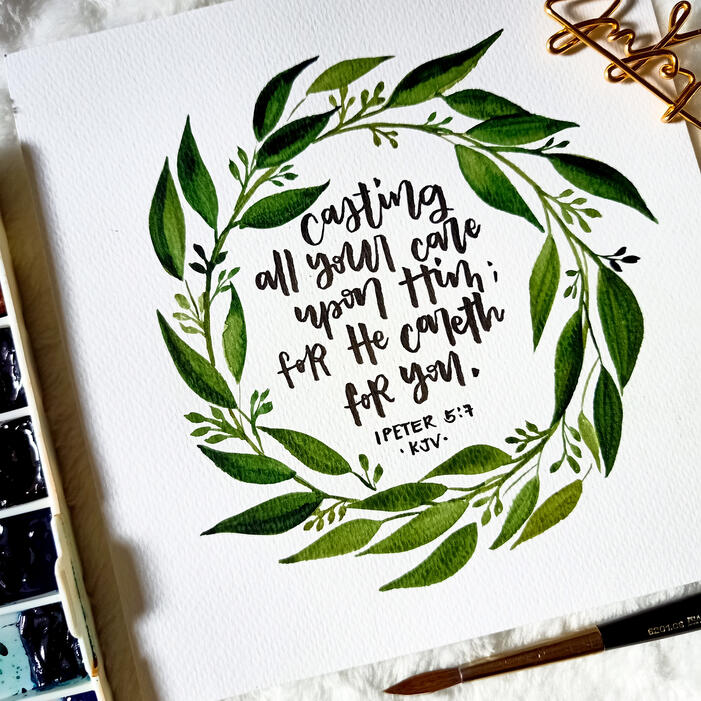 casting
all your care
upon Him;
foR He caReth
foR you.
1 PETER 5:7
·KJV·